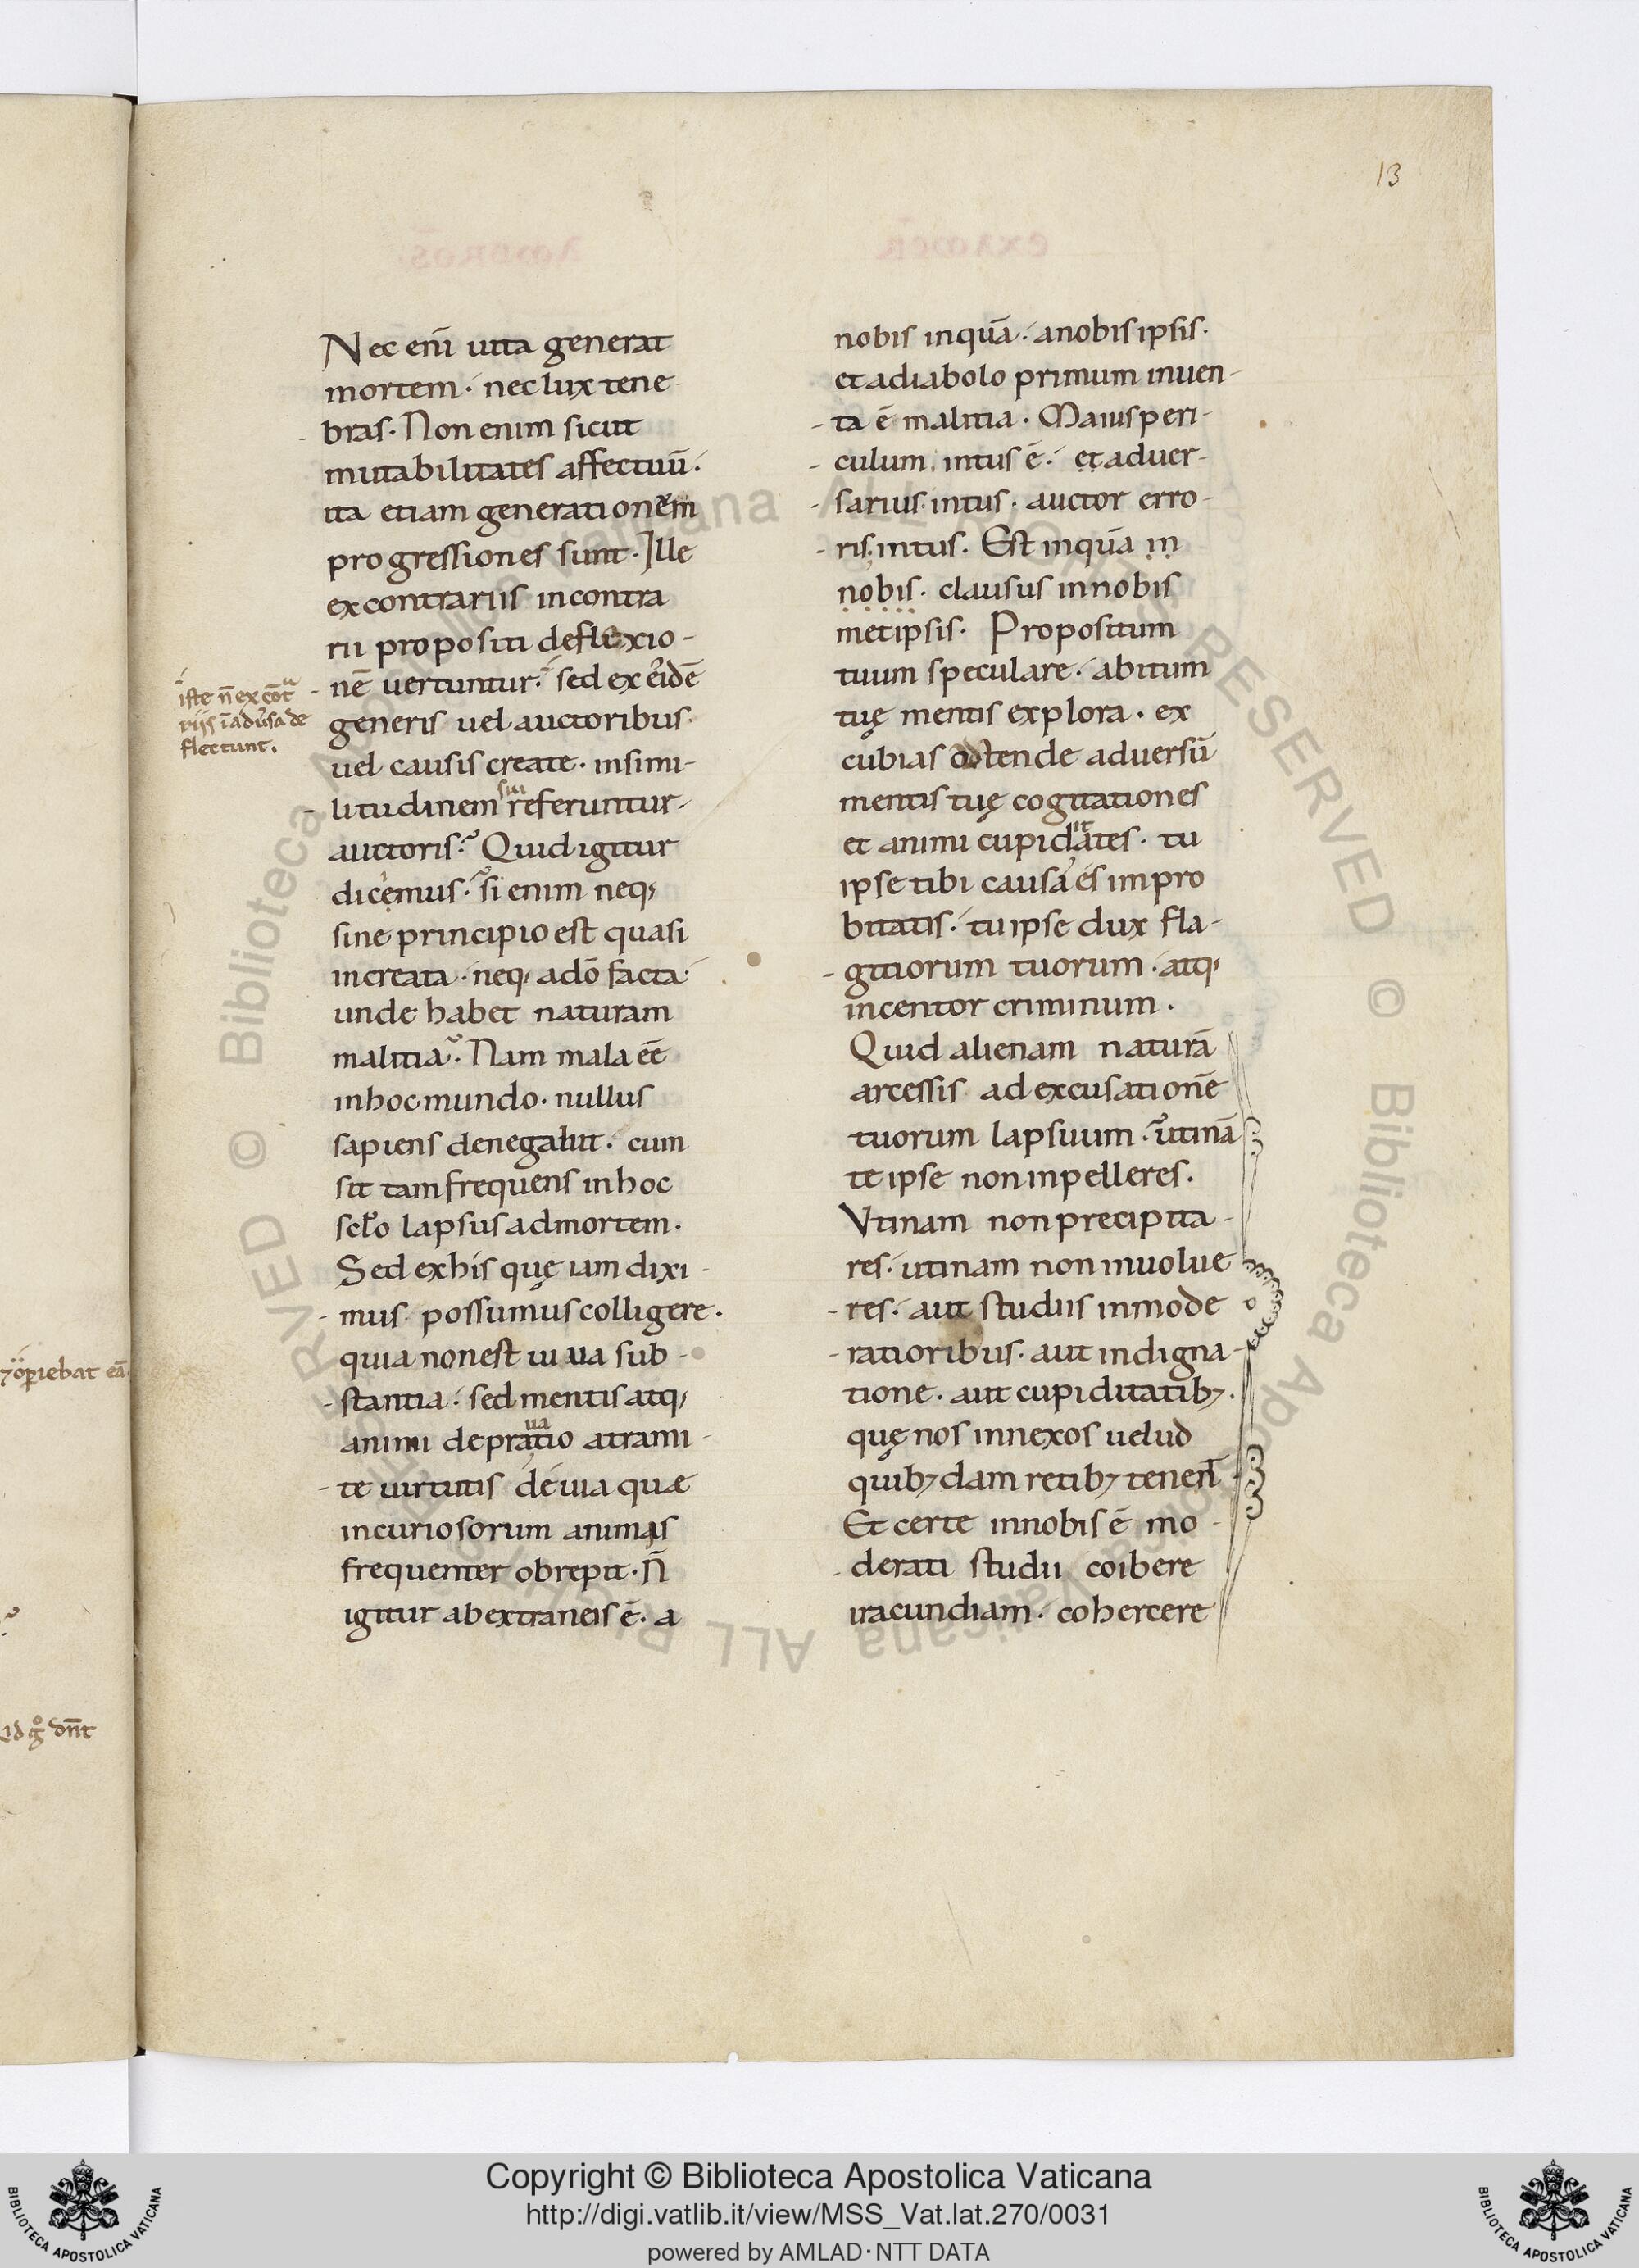 13
Nec eni᷑ uita generat
mortem · nec lux tene-
bras · Non enim sicut
mutabilitates affectuū ·
ita etiam generationem
progressiones sunt · Ille
ex contrariis in contra
rii propositi deflexio-
nē uertuntur · sed ex eidē
generis uel auctoribus
uel causis create · in simi-
litudinem sui referuntur
auctoris · Quid igitur
dicemus · si enim neq;
sine principio est quasi
increata · neq; a dō facta
unde habet naturam
malitia · Nam mala eē
in hoc mundo · nullus
sapiens denegabit · cum
sit tam frequens in hoc
sclo lapsus ad mortem ·
Sed ex his quę iam dixi-
mus possumus colligere ·
quia non est uiua sub-
stantia · sed mentis atq;
animi deprauatio a trami-
te uirtutis deuia quae
incuriosorum animas
frequenter obrepit · N̄
igitur ab extraneis ē · a
iste n̄ ex cōt
riis ī adūsa de
flectunt.
nobis inquā · a nobis ipsis ·
et a diabolo primum inuen-
ta ē malitia · Maius peri-
culum intus ē · et aduer-
sarius intus · auctor erro-
ris intus · Est inquā in
nobis · clausus in nobis
metipsis · Propositum
tuum speculare · abitum
tuę mentis explora · ex
cubias ostende aduersū
mentis tuę cogitationes
et animi cupiditates · tu
ipse tibi causa es impro
bitatis · tu ipse dux fla-
gitiorum tuorum · atq;
incentor criminum ·
Quid alienam naturā
arcessis ad excusationē
tuorum lapsuum · utinā
te ipse non inpelleres ·
Vtinam non precipita-
res · utinam non inuolue
res · aut studiis inmode
ratioribus · aut indigna-
tione · aut cupiditatib; ·
quę nos innexos uelud
quib; dam retib; tenen̄t
Et certe in nobis ē mo-
derati studii coibere
iracundiam · cohercere
Copyright © Biblioteca Apostolica Vaticana
http://digi.vatlib.it/view/MSS_Vat.lat.270/0031
powered by AMLAD·NTT DATA